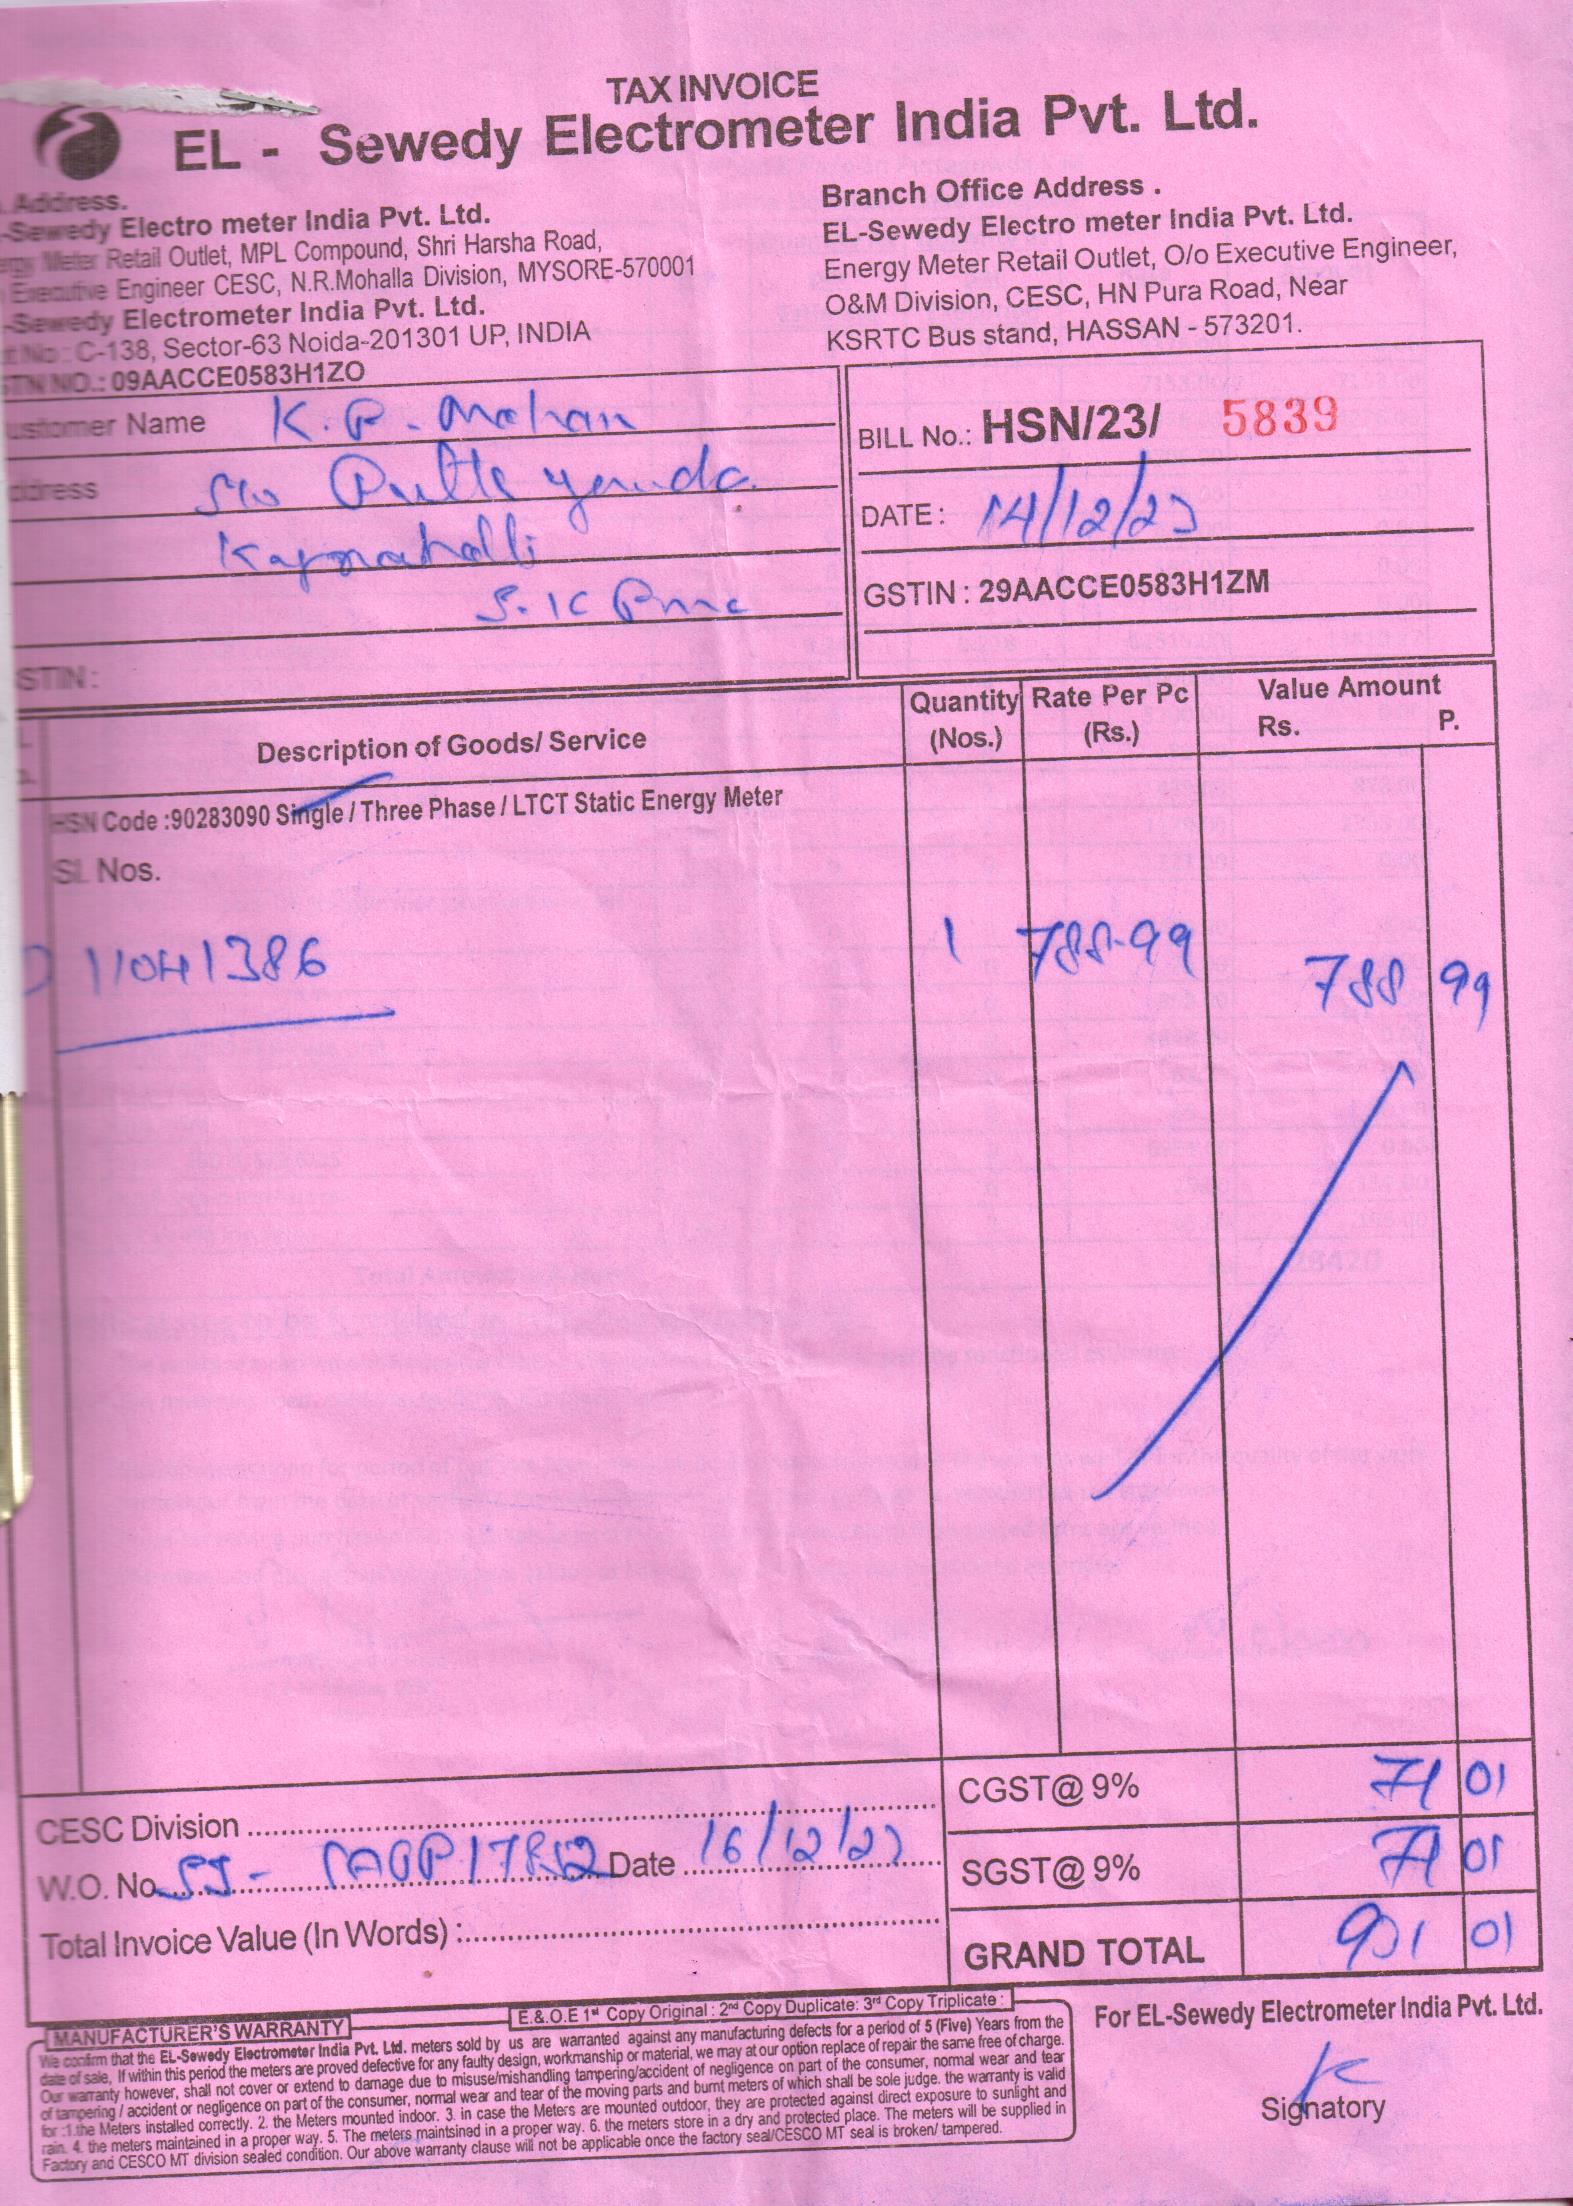 TAX INVOICE
EL - Sewedy Electrometer India Pvt. Ltd.
Address.
-Sewedy Electro meter India Pvt. Ltd.
Meter Retail Outlet, MPL Compound, Shri Harsha Road,
Executive Engineer CESC, N.R.Mohalla Division, MYSORE-570001
-Sewedy Electrometer India Pvt. Ltd.
No : C-138, Sector-63 Noida-201301 UP, INDIA
STIN NO.: 09AACCE0583H1ZO
Branch Office Address .
EL-Sewedy Electro meter India Pvt. Ltd.
Energy Meter Retail Outlet, O/o Executive Engineer,
O&M Division, CESC, HN Pura Road, Near
KSRTC Bus stand, HASSAN - 573201.
ustomer Name K. P. Mohan
ddress S/o
STIN :
BILL No.: HSN/23/ 5839
DATE : 14/12/23
GSTIN : 29AACCE0583H1ZM
Description of Goods/ Service
Quantity (Nos.)
Rate Per Pc (Rs.)
Value Amount
Rs. P.
HSN Code :90283090 Single / Three Phase / LTCT Static Energy Meter
Sl. Nos.
11041386 1 788-99 788 99
CGST@ 9% 71 01
SGST@ 9% 71 01
GRAND TOTAL 931 01
CESC Division
W.O. No. Date 16/12/23
Total Invoice Value (In Words) :
E.& O.E 1st Copy Original : 2nd Copy Duplicate: 3rd Copy Triplicate :
MANUFACTURER'S WARRANTY
We confirm that the EL-Sewedy Electrometer India Pvt. Ltd. meters sold by us are warranted against any manufacturing defects for a period of 5 (Five) Years from the
date of sale, If within this period the meters are proved defective for any faulty design, workmanship or material, we may at our option replace of repair the same free of charge.
Our warranty however, shall not cover or extend to damage due to misuse/mishandling tampering/accident of negligence on part of the consumer, normal wear and tear
of tampering / accident or negligence on part of the consumer, normal wear and tear of the moving parts and burnt meters of which shall be sole judge. the warranty is valid
for :1.the Meters installed correctly. 2. the Meters mounted indoor. 3. in case the Meters are mounted outdoor, they are protected against direct exposure to sunlight and
rain. 4. the meters maintained in a proper way. 5. The meters maintsined in a proper way. 6. the meters store in a dry and protected place. The meters will be supplied in
Factory and CESCO MT division sealed condition. Our above warranty clause will not be applicable once the factory seal/CESCO MT seal is broken/ tampered.
For EL-Sewedy Electrometer India Pvt. Ltd.
Signatory